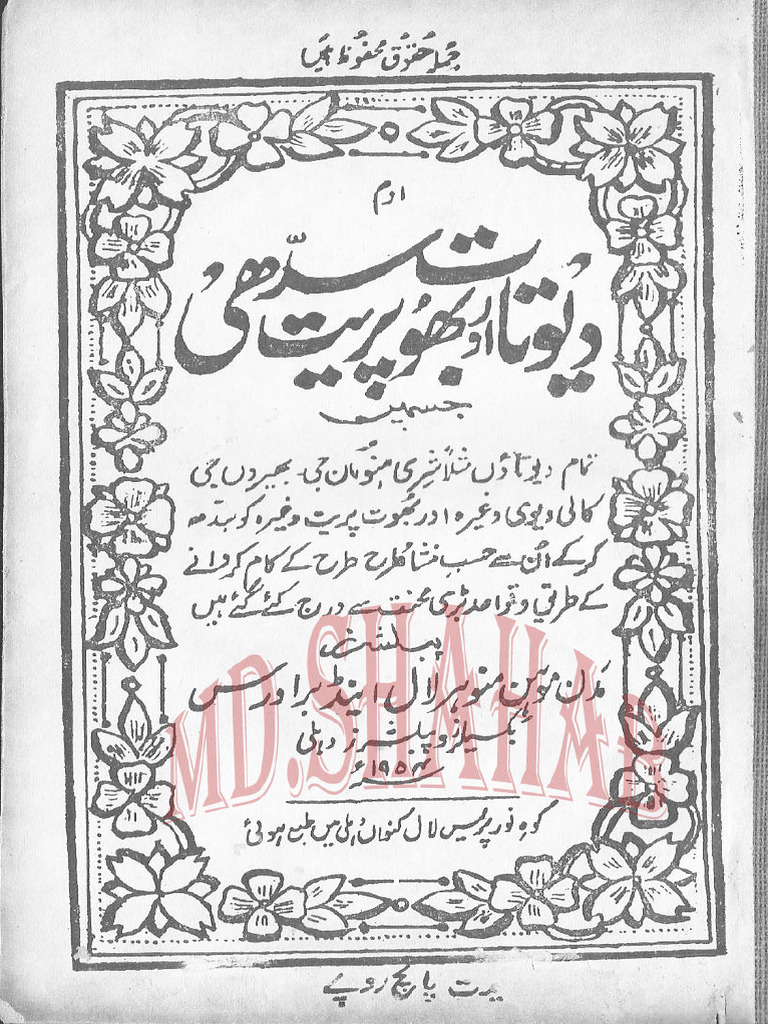 جملہ حقوق محفوظ ہیں
اوم
دیوتا اور بھوت پریت سدّھی
جسمیں
تمام دیوتاؤں مثلاً شری ہنومان جی۔ بھیروں جی
کالی دیوی وغیرہ اور بھوت پریت وغیرہ کو سدھ
کر کے اُن سے حسب منشا طرح طرح کے کام کروانے
کے طریق و قواعد بڑی محنت سے درج کئے گئے ہیں
پبلشرز
مدن موہن منوہر لال اینڈ برادرس
بکسیلرز و پبلشرز دہلی
۱۹۵۴ء
کوہ نور پریس لال کنواں دہلی میں طبع ہوئی
قیمت پانچ روپے
MD.SHAHAB